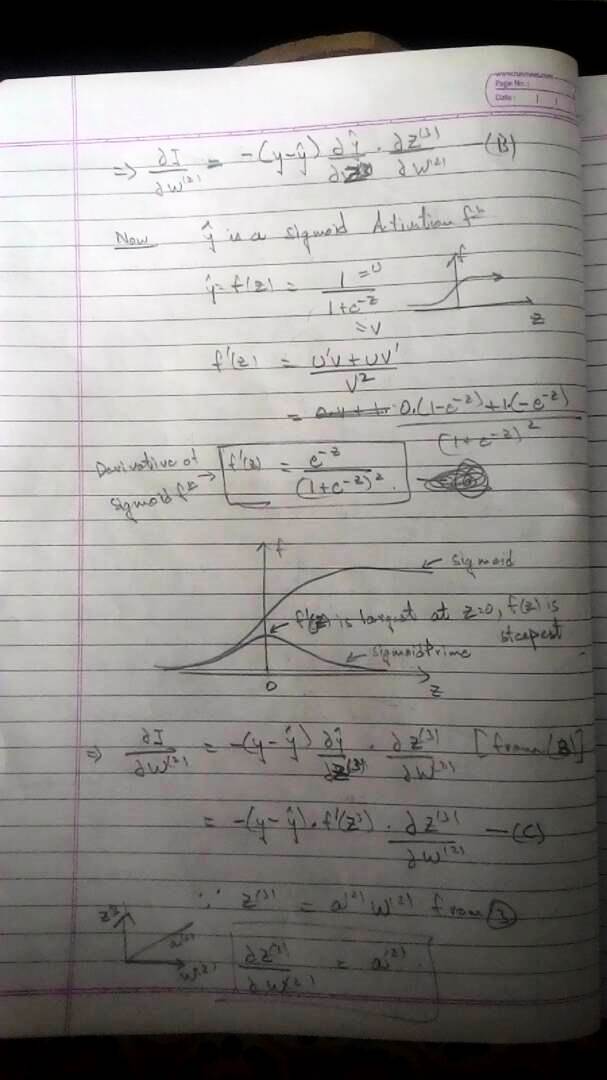 Page No.:
Date:
⇒ ∂J/∂w⁽²⁾ = -(y-ŷ) ∂ŷ/∂z⁽³⁾ · ∂z⁽³⁾/∂w⁽²⁾ —(B)
Now ŷ is a sigmoid Activation fⁿ
ŷ = f(z) = 1/(1+e^-z) =U =V
f
z
f'(z) = (U'V + UV')/V²
= (0.(1-e^-z) + 1.(-e^-z))/(1+e^-z)²
Derivative of sigmoid fⁿ → f'(z) = e^-z/(1+e^-z)².
f
← sigmoid
← f'(z) is largest at z=0, f(z) is steepest
← sigmoidPrime
0
z
⇒ ∂J/∂w⁽²⁾ = -(y-ŷ) ∂ŷ/∂z⁽³⁾ · ∂z⁽³⁾/∂w⁽²⁾ [from (B)]
= -(y-ŷ) · f'(z³) · ∂z⁽³⁾/∂w⁽²⁾ —(C)
∵ z⁽³⁾ = a⁽²⁾ w⁽²⁾ from ③
z³
a⁽²⁾
w⁽²⁾
∂z⁽³⁾/∂w⁽²⁾ = a⁽²⁾.